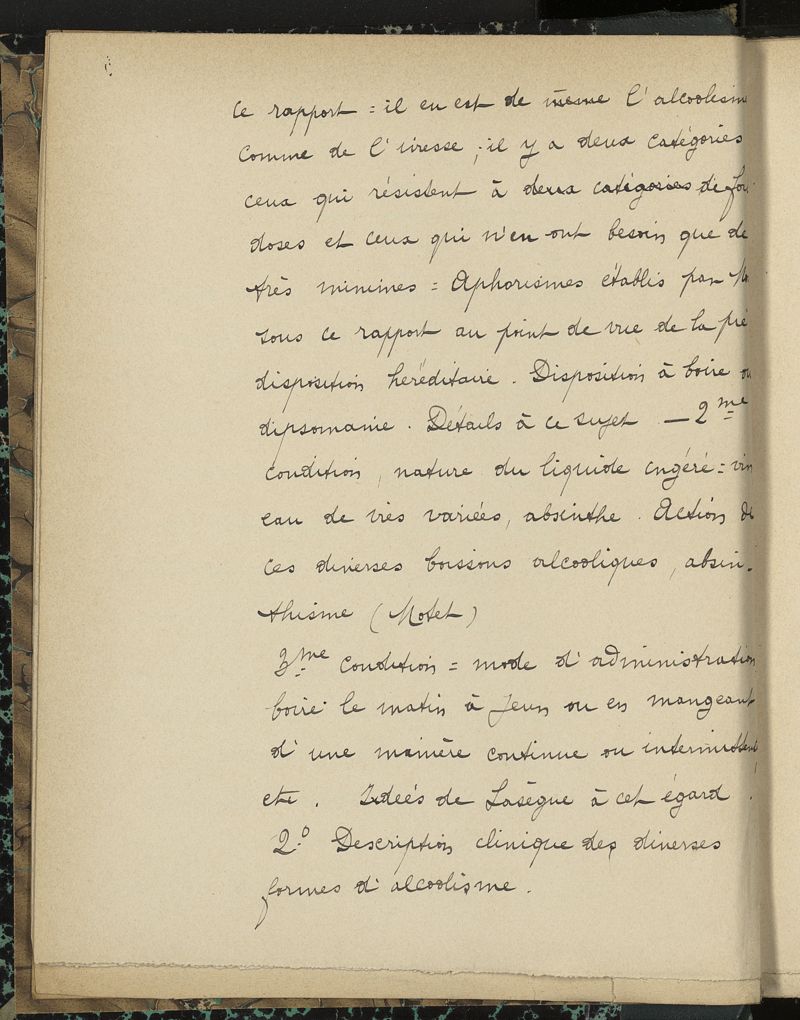 ce rapport = il en est de même l'alcoolism
comme de l'ivresse ; il y a deux catégories
ceux qui résistent à deux catégories di for
doses et ceux qui n'en ont besoin que de
très minimes = Aphorismes établis par M
sous ce rapport au point de vue de la pré
disposition heréditaire. Disposition à boire ou
dipsomanie. Détails à ce sujet — 2me
condition, nature du liquide ingéré = vin
eau de vies variées, absinthe. Action de
ces diverses boissons alcooliques, absin-
thisme (Motet)
3me condition = mode d'administration
boire le matin à jeun ou en mangeant
d'une manière continue ou intermittent
etc. Idées de Lasègue à cet égard.
2o Description clinique des diverses
formes d'alcoolisme.